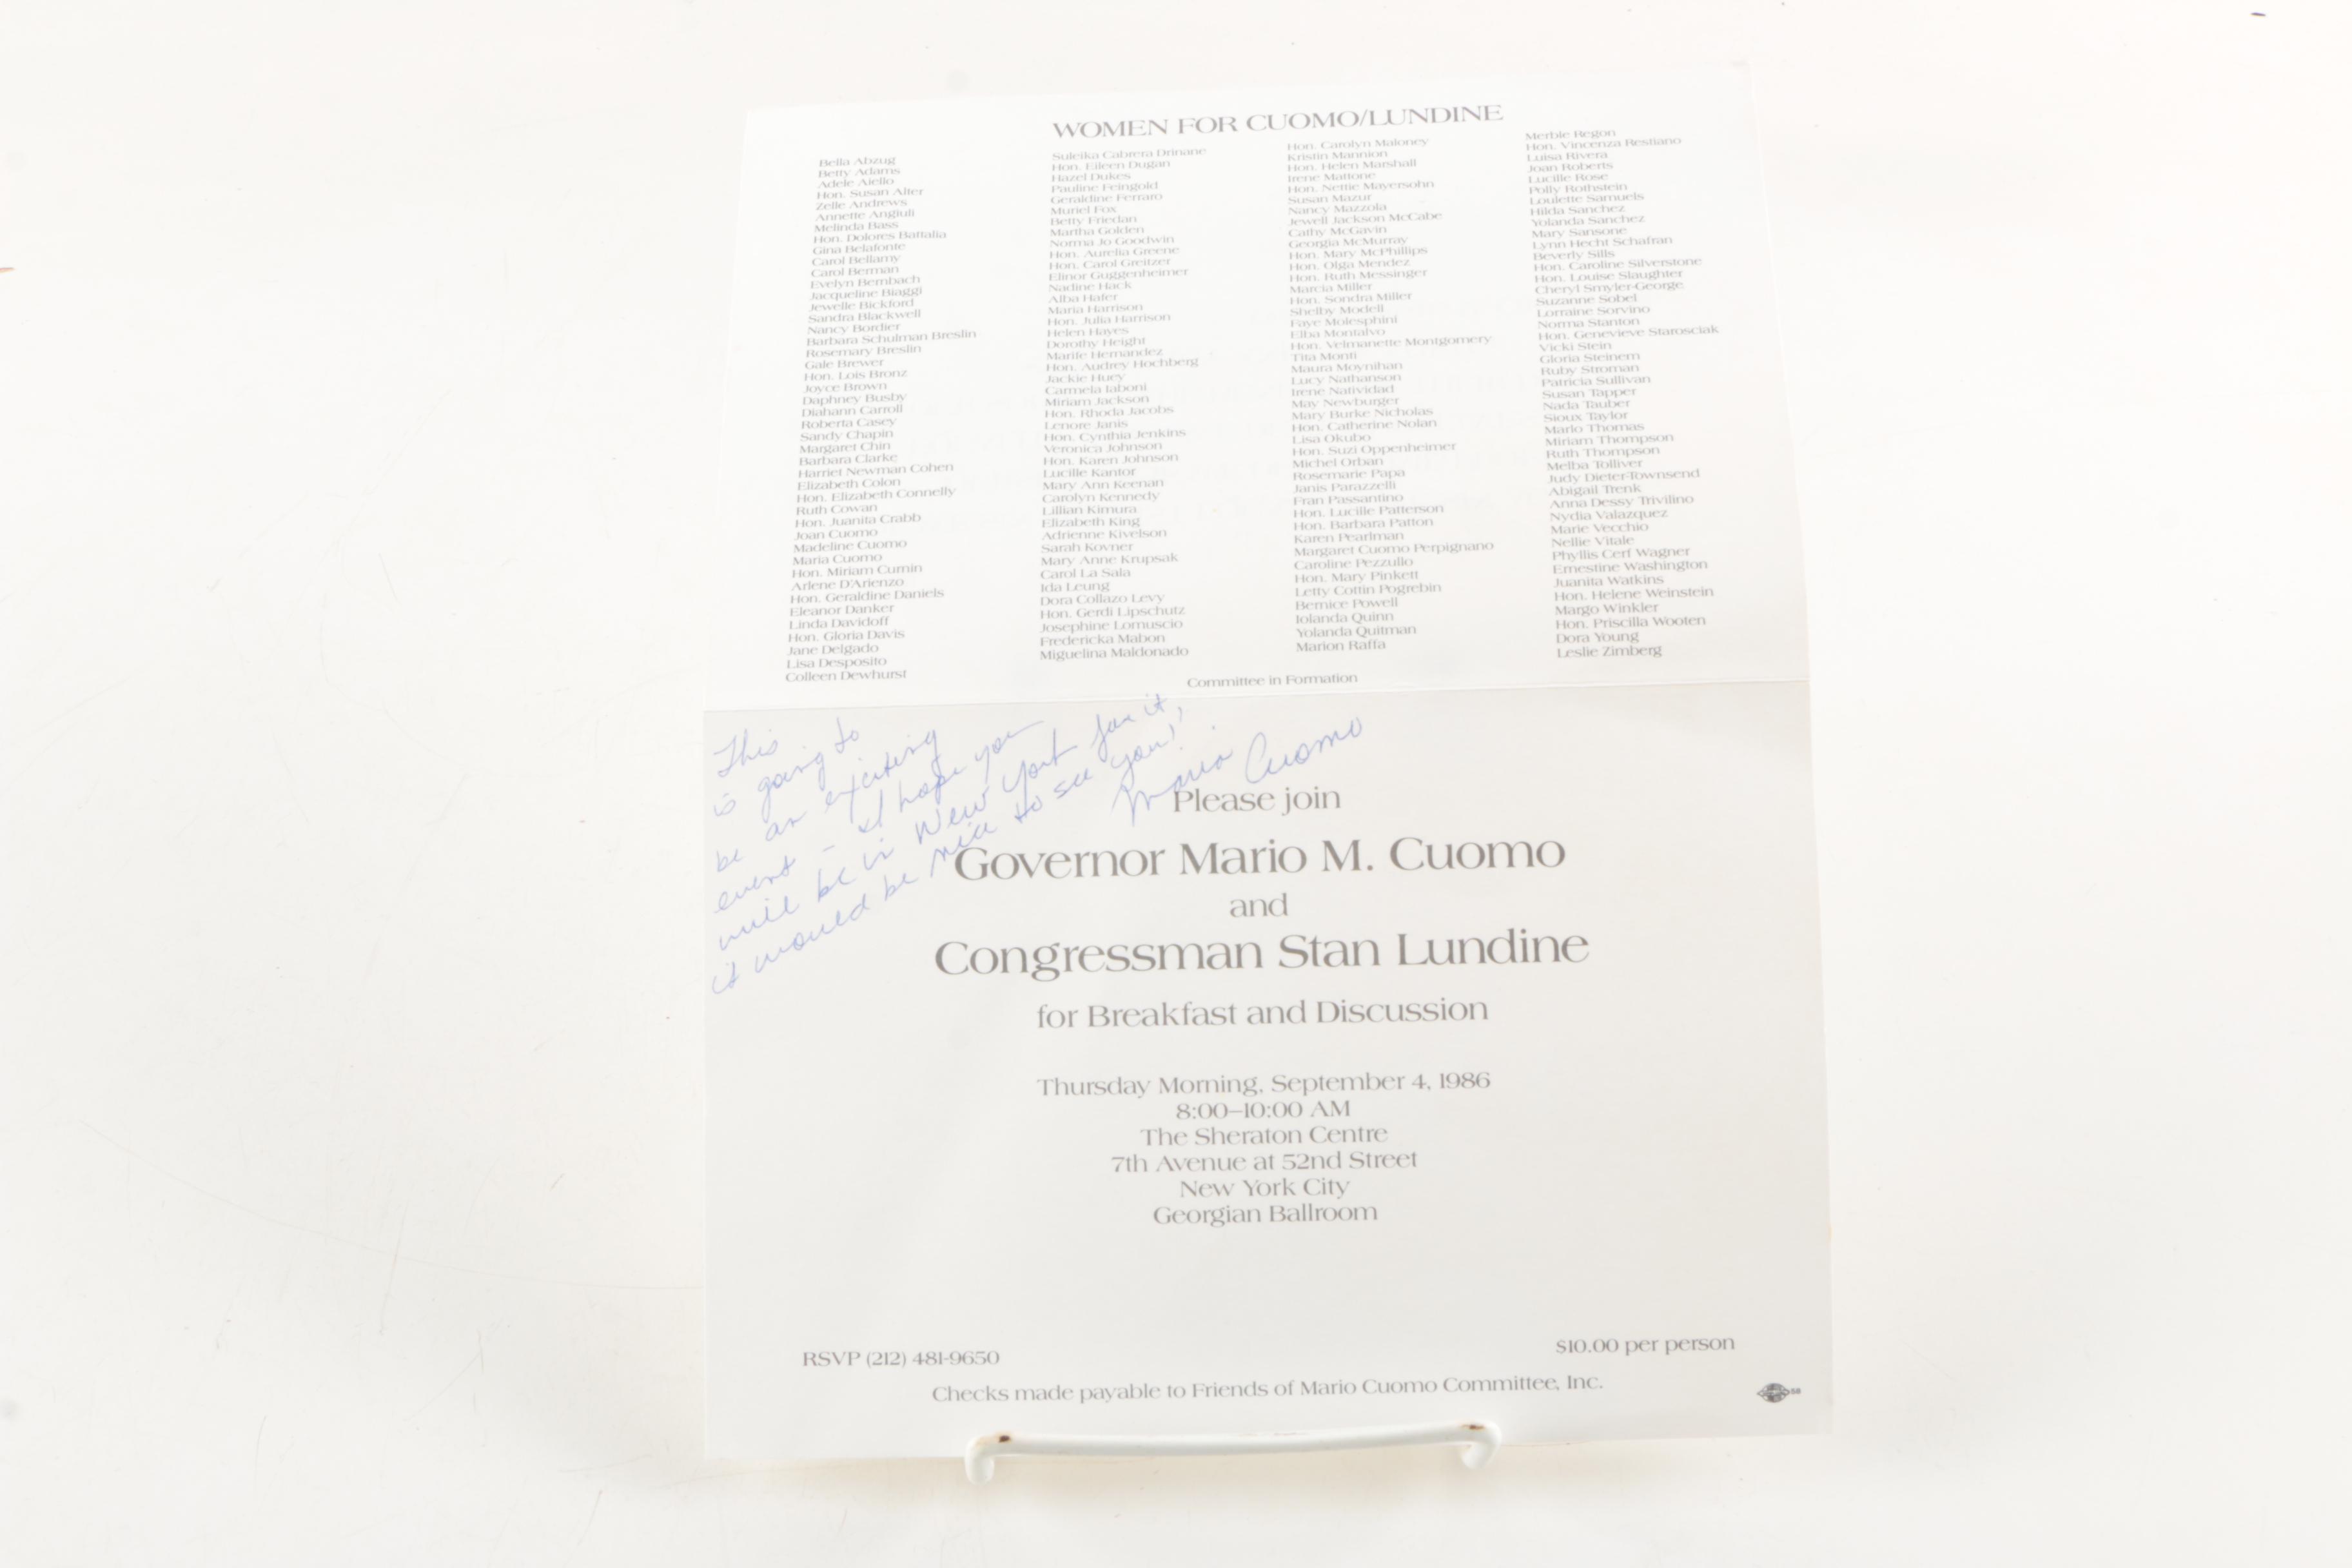 WOMEN FOR CUOMO/LUNDINE
Bella Abzug
Betty Adams
Adele Aiello
Hon. Susan Alter
Zelle Andrews
Annette Angiuli
Melinda Bass
Hon. Dolores Battalia
Gina Belafonte
Carol Bellamy
Carol Berman
Evelyn Bernbach
Jacqueline Biaggi
Jewelle Bickford
Sandra Blackwell
Nancy Bordier
Barbara Schulman Breslin
Rosemary Breslin
Gale Brewer
Hon. Lois Bronz
Joyce Brown
Daphney Busby
Diahann Carroll
Roberta Casey
Sandy Chapin
Margaret Chin
Barbara Clarke
Harriet Newman Cohen
Elizabeth Colon
Hon. Elizabeth Connelly
Ruth Cowan
Hon. Juanita Crabb
Joan Cuomo
Madeline Cuomo
Maria Cuomo
Hon. Miriam Curnin
Arlene D'Arienzo
Hon. Geraldine Daniels
Eleanor Danker
Linda Davidoff
Hon. Gloria Davis
Jane Delgado
Lisa Desposito
Colleen Dewhurst
Suleika Cabrera Drinane
Hon. Eileen Dugan
Hazel Dukes
Pauline Feingold
Geraldine Ferraro
Muriel Fox
Betty Friedan
Martha Golden
Norma Jo Goodwin
Hon. Aurelia Greene
Hon. Carol Greitzer
Elinor Guggenheimer
Nadine Hack
Alba Hafer
Maria Harrison
Hon. Julia Harrison
Helen Hayes
Dorothy Height
Marife Hernandez
Hon. Audrey Hochberg
Jackie Huey
Carmela Iaboni
Miriam Jackson
Hon. Rhoda Jacobs
Lenore Janis
Hon. Cynthia Jenkins
Veronica Johnson
Hon. Karen Johnson
Lucille Kantor
Mary Ann Keenan
Carolyn Kennedy
Lillian Kimura
Elizabeth King
Adrienne Kivelson
Sarah Kovner
Mary Anne Krupsak
Carol La Sala
Ida Leung
Dora Collazo Levy
Hon. Gerdi Lipschutz
Josephine Lomuscio
Fredericka Mabon
Miguelina Maldonado
Hon. Carolyn Maloney
Kristin Mannion
Hon. Helen Marshall
Irene Mattone
Hon. Nettie Mayersohn
Susan Mazur
Nancy Mazzola
Jewell Jackson McCabe
Cathy McGavin
Georgia McMurray
Hon. Mary McPhillips
Hon. Olga Mendez
Hon. Ruth Messinger
Marcia Miller
Hon. Sondra Miller
Shelby Modell
Faye Molesphini
Elba Montalvo
Hon. Velmanette Montgomery
Tita Monti
Maura Moynihan
Lucy Nathanson
Irene Natividad
May Newburger
Mary Burke Nicholas
Hon. Catherine Nolan
Lisa Okubo
Hon. Suzi Oppenheimer
Michel Orban
Rosemarie Papa
Janis Parazzelli
Fran Passantino
Hon. Lucille Patterson
Hon. Barbara Patton
Karen Pearlman
Margaret Cuomo Perpignano
Caroline Pezzullo
Hon. Mary Pinkett
Letty Cottin Pogrebin
Bernice Powell
Iolanda Quinn
Yolanda Quitman
Marion Raffa
Merble Regon
Hon. Vincenza Restiano
Luisa Rivera
Joan Roberts
Lucille Rose
Polly Rothstein
Loulette Samuels
Hilda Sanchez
Yolanda Sanchez
Mary Sansone
Lynn Hecht Schafran
Beverly Sills
Hon. Caroline Silverstone
Hon. Louise Slaughter
Cheryl Smyler-George
Suzanne Sobel
Lorraine Sorvino
Norma Stanton
Hon. Genevieve Starosciak
Vicki Stein
Gloria Steinem
Ruby Stroman
Patricia Sullivan
Susan Tapper
Nada Tauber
Sioux Taylor
Marlo Thomas
Miriam Thompson
Ruth Thompson
Melba Tolliver
Judy Dieter-Townsend
Abigail Trenk
Anna Dessy Trivilino
Nydia Valazquez
Marie Vecchio
Nellie Vitale
Phyllis Cerf Wagner
Ernestine Washington
Juanita Watkins
Hon. Helene Weinstein
Margo Winkler
Hon. Priscilla Wooten
Dora Young
Leslie Zimberg
Committee in Formation
This
is going to
be an exciting
event - I hope you
will be in New York for it,
it would be nice to see you!
Maria Cuomo
Please join
Governor Mario M. Cuomo
and
Congressman Stan Lundine
for Breakfast and Discussion
Thursday Morning, September 4, 1986
8:00–10:00 AM
The Sheraton Centre
7th Avenue at 52nd Street
New York City
Georgian Ballroom
RSVP (212) 481-9650
$10.00 per person
Checks made payable to Friends of Mario Cuomo Committee, Inc.
58